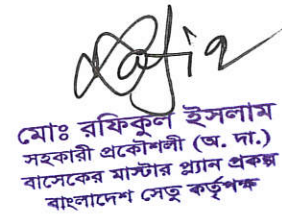 Rafiq
মোঃ রফিকুল ইসলাম
সহকারী প্রকৌশলী (অ. দা.)
বাসেকের মাস্টার প্ল্যান প্রকল্প
বাংলাদেশ সেতু কর্তৃপক্ষ